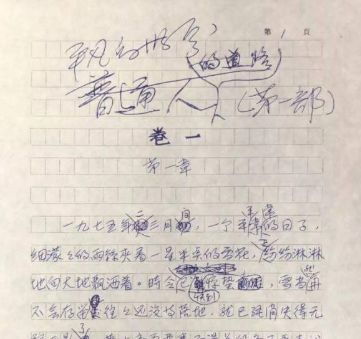 第 1 頁
平凡的世界
普通人的道路
(第一部)
卷一
第一章
一九七五年二三月间,一个平平常常的日子,
细蒙蒙的雨丝夹着一星半点的雪花,正纷纷淋淋
地向大地飘洒着。时令已快到惊蛰,雪当然再
不会存留,往往还没等落地,就已经消失得无